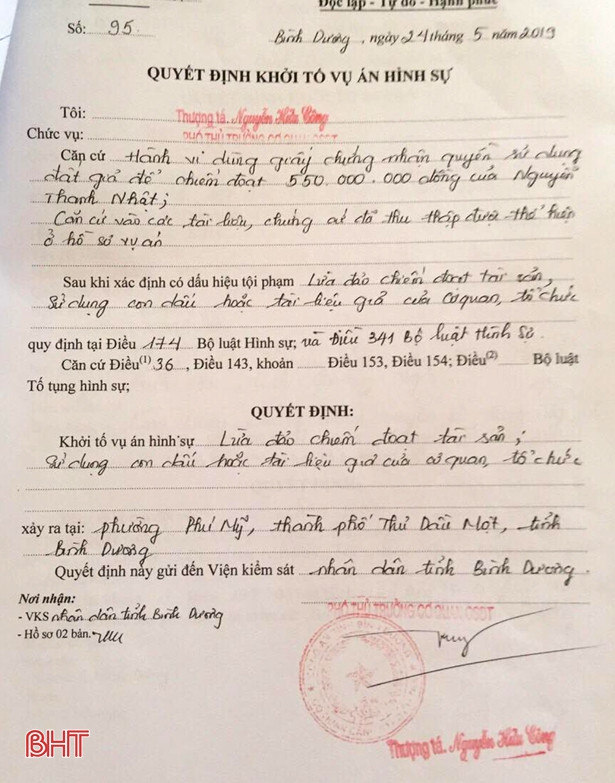 Độc lập - Tự do - Hạnh phúc
Số: 95.
Bình Dương, ngày 24 tháng 5 năm 2019
QUYẾT ĐỊNH KHỞI TỐ VỤ ÁN HÌNH SỰ
Tôi: Thượng tá. Nguyễn Hữu Công
Chức vụ: PHÓ THỦ TRƯỞNG CƠ QUAN CSĐT
Căn cứ Hành vi dùng giấy chứng nhận quyền sử dụng
đất giả để chiếm đoạt 550.000.000 đồng của Nguyễn
Thanh Nhật;
Căn cứ vào các tài liệu, chứng cứ đã thu thập được thể hiện
ở hồ sơ vụ án
Sau khi xác định có dấu hiệu tội phạm Lừa đảo chiếm đoạt tài sản,
Sử dụng con dấu hoặc tài liệu giả của cơ quan, tổ chức
quy định tại Điều 174 Bộ luật Hình sự; và Điều 341 Bộ luật Hình Sự.
Căn cứ Điều(1) 36, Điều 143, khoản Điều 153, Điều 154; Điều(2) Bộ luật
Tố tụng hình sự;
QUYẾT ĐỊNH:
Khởi tố vụ án hình sự Lừa đảo chiếm đoạt tài sản;
Sử dụng con dấu hoặc tài liệu giả của cơ quan, tổ chức
xảy ra tại: phường Phú Mỹ, thành phố Thủ Dầu Một, tỉnh
Bình Dương
Quyết định này gửi đến Viện kiểm sát nhân dân tỉnh Bình Dương.
Nơi nhận:
- VKS nhân dân tỉnh Bình Dương
- Hồ sơ 02 bản.
PHÓ THỦ TRƯỞNG CƠ QUAN CSĐT
Thượng tá. Nguyễn Hữu Công
BHT